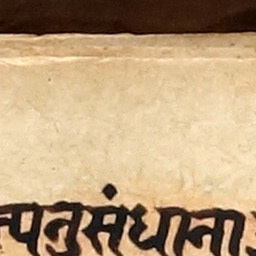 त्पनुसंधाना